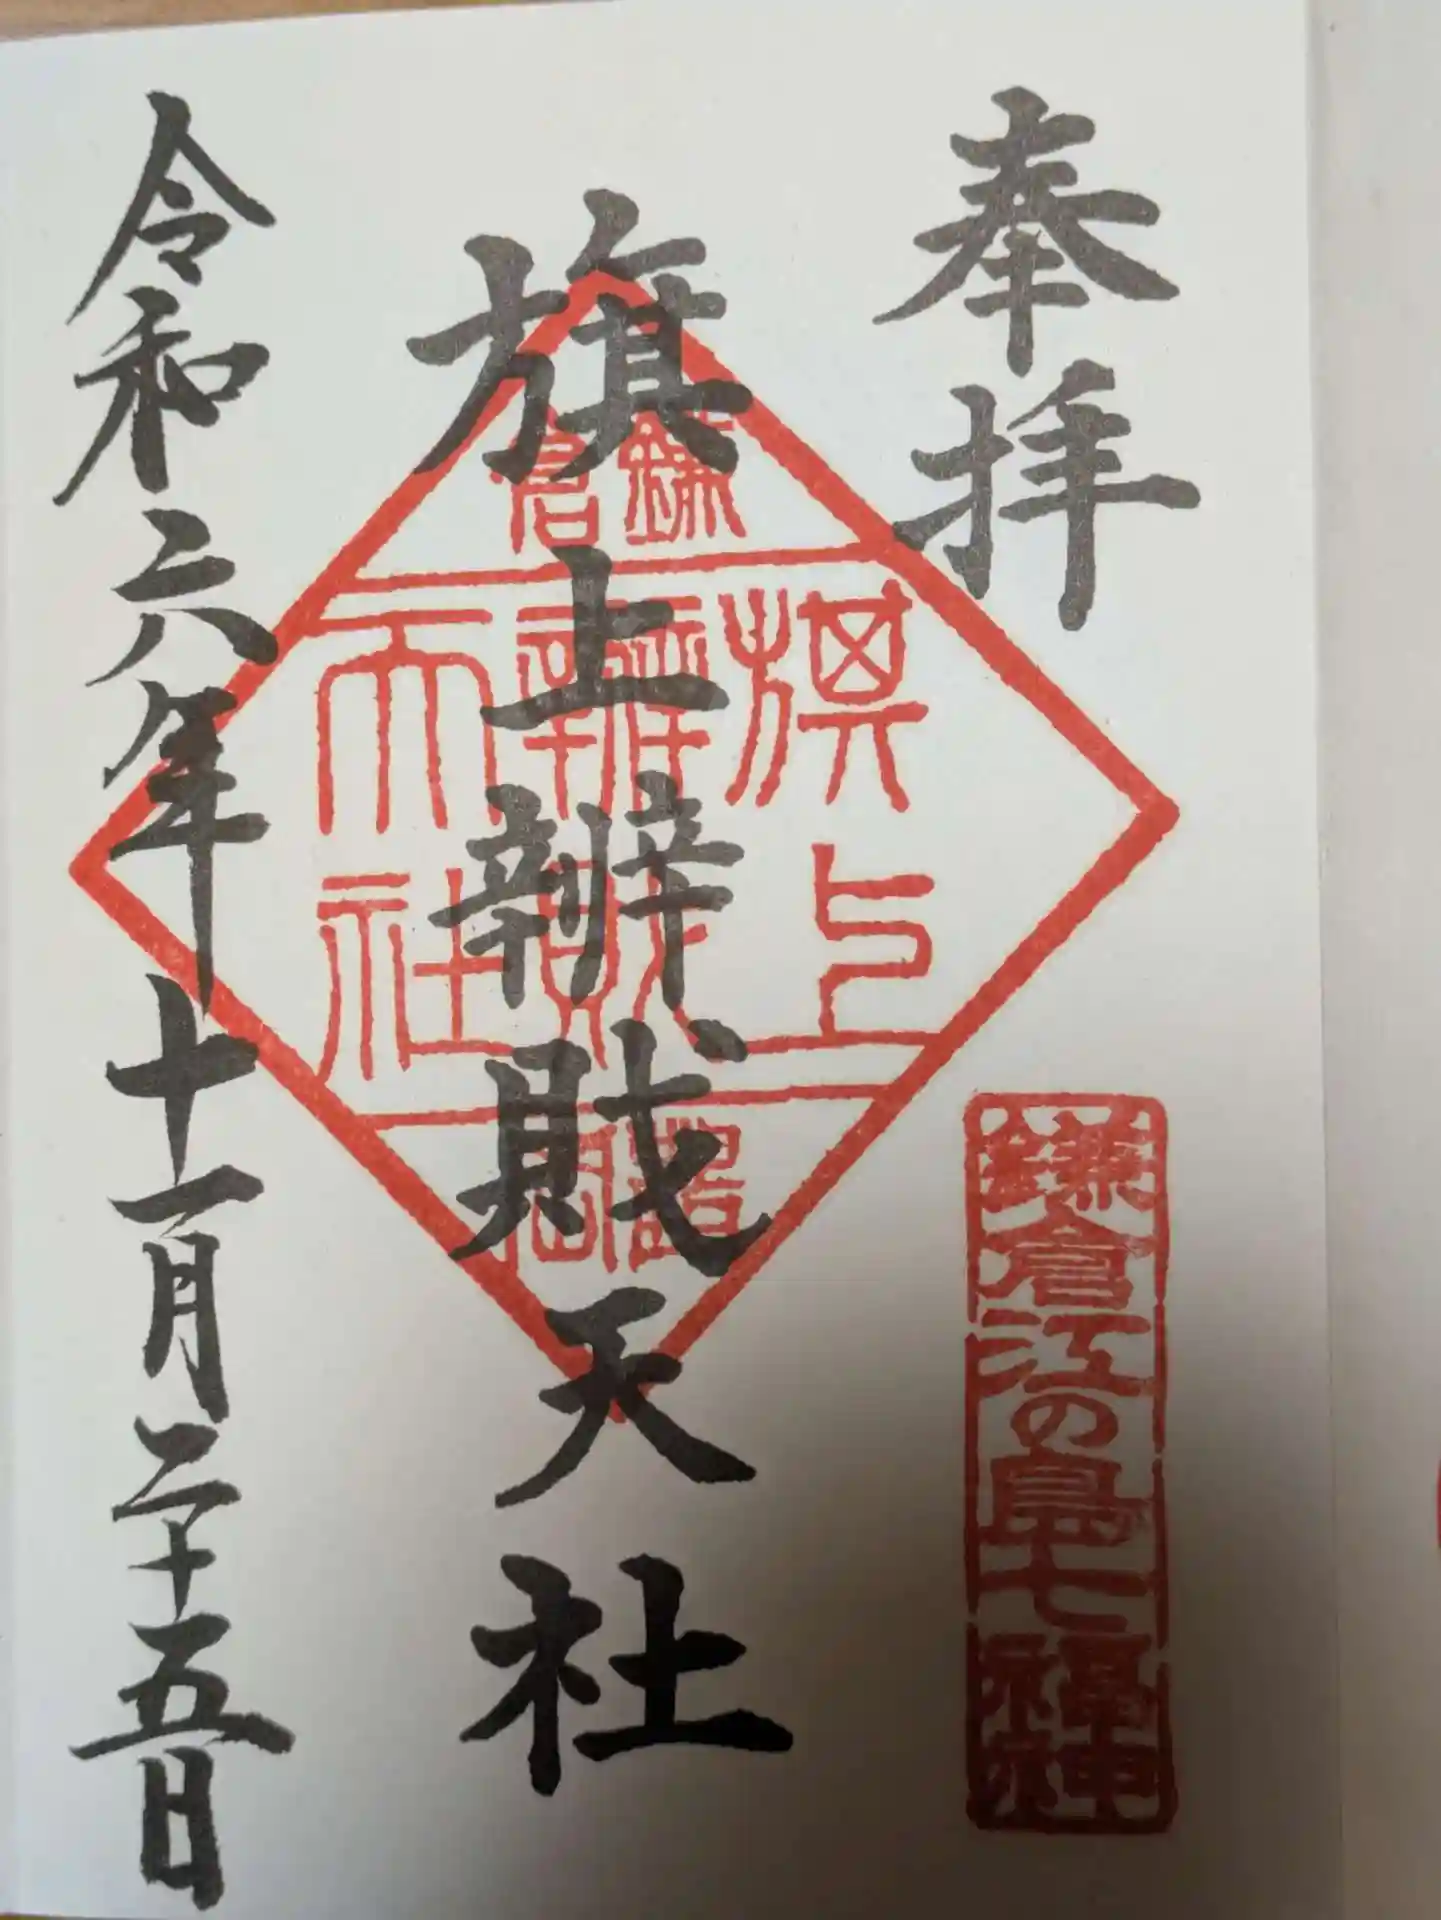 奉拝
鎌倉江の島七福神
旗上辨財天社
鎌倉
旗上
辨財
天社
令和六年十一月二十五日